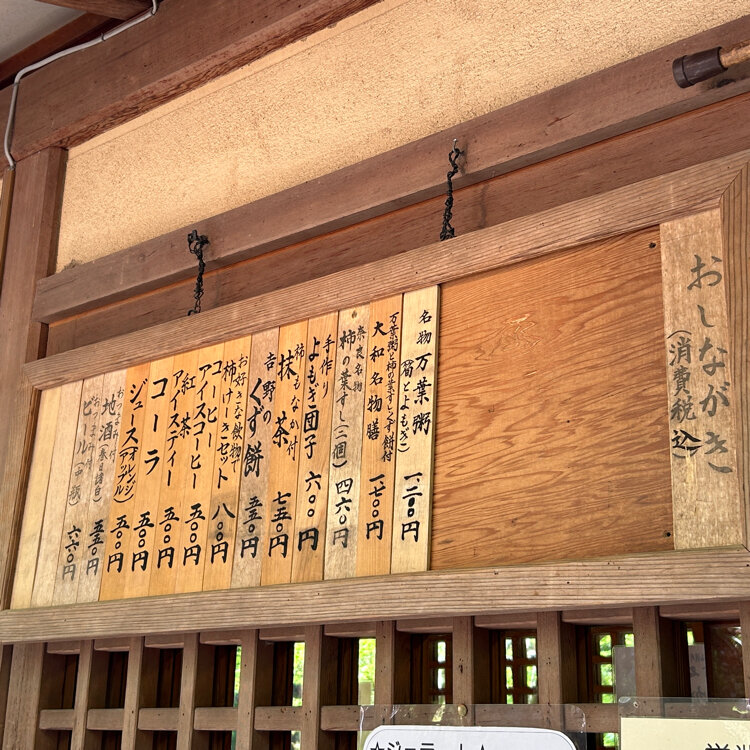 おしながき
(消費税込)
名物 万葉粥
(筍とよもぎ)
一、二〇〇円
万葉粥と柿の葉すしくず餅付
大和名物膳
一、七〇〇円
奈良名物
柿の葉すし(二個) 四六〇円
手作り
よもぎ団子 六〇〇円
柿もなか付
抹茶 七五〇円
吉野の
くず餅 五五〇円
お好きな飲物で
柿けーきセット 八〇〇円
コーヒー
アイスコーヒー 五〇〇円
紅茶
アイスティー 五〇〇円
コーラ 五〇〇円
ジュース(オレンジ アップル) 五〇〇円
おつまみ付
地酒(春日諸白) 五五〇円
おつまみ付
ビール(中瓶) 六六〇円